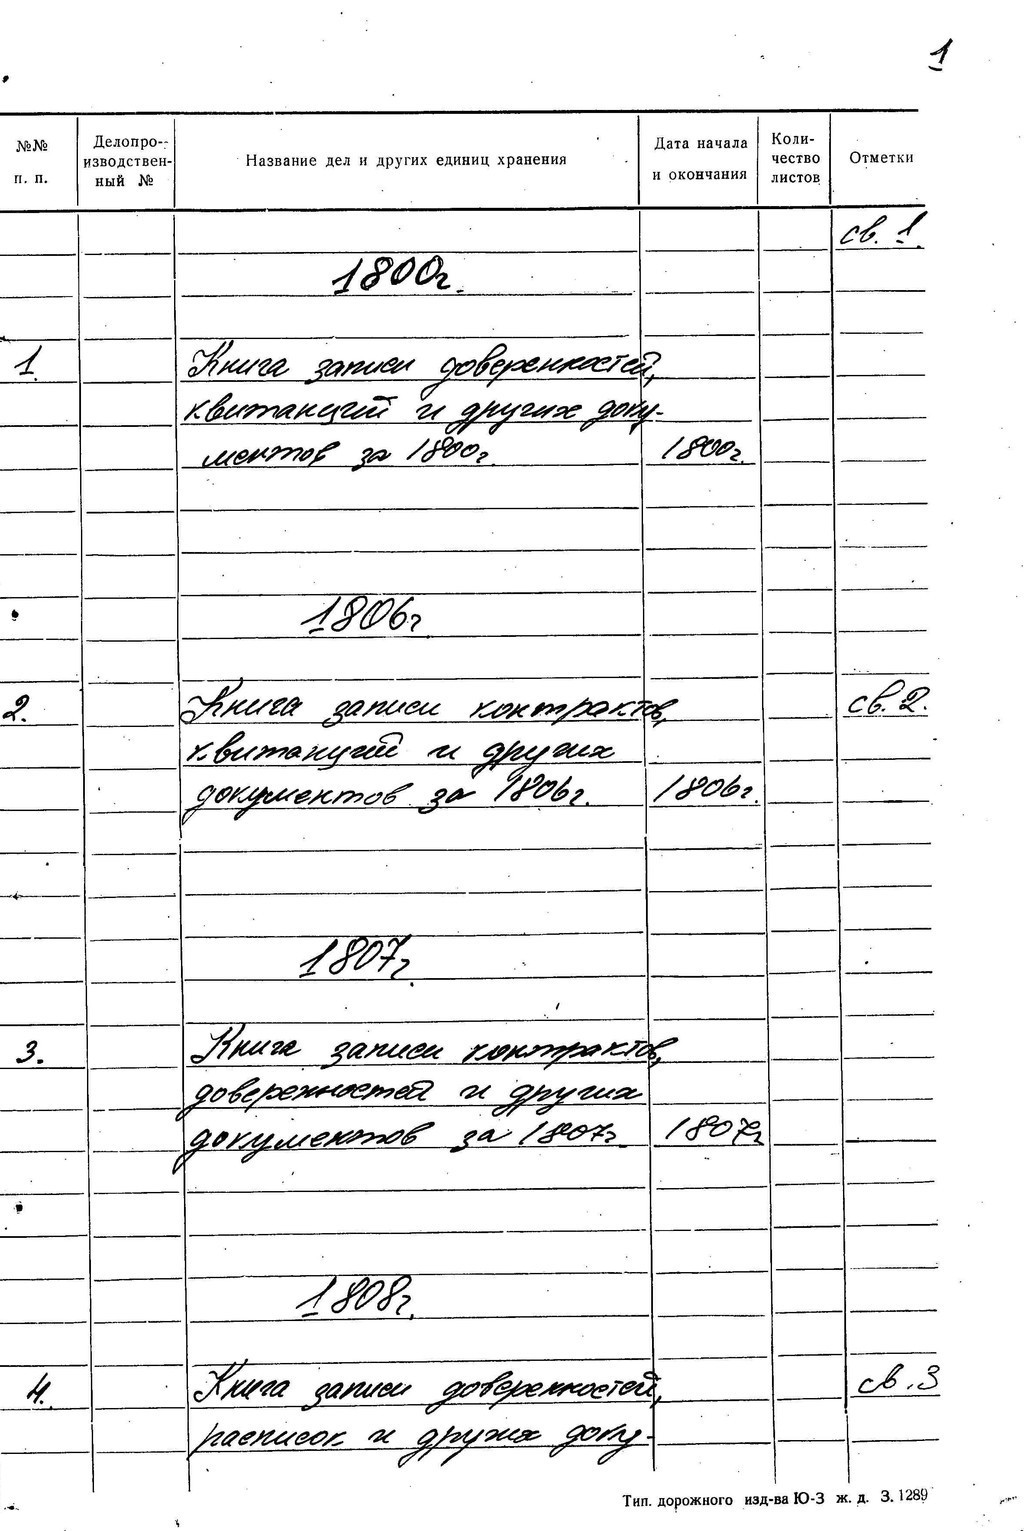 1
№№ п. п.
Делопро-
изводствен-
ный №
Название дел и других единиц хранения
Дата начала
и окончания
Коли-
чество
листов
Отметки
св. 1.
1800г.
1. Книга записи доверенностей,
квитанций и других доку-
ментов за 1800г. 1800г.
1806г
2. Книга записи контрактов, св. 2.
квитанций и других
документов за 1806г. 1806г.
1807г.
3. Книга записи контрактов,
доверенностей и других
документов за 1807г. 1807г
1808г.
4. Книга записи доверенностей, св. 3
расписок и других доку-
Тип. дорожного изд-ва Ю-З ж. д. З. 1289